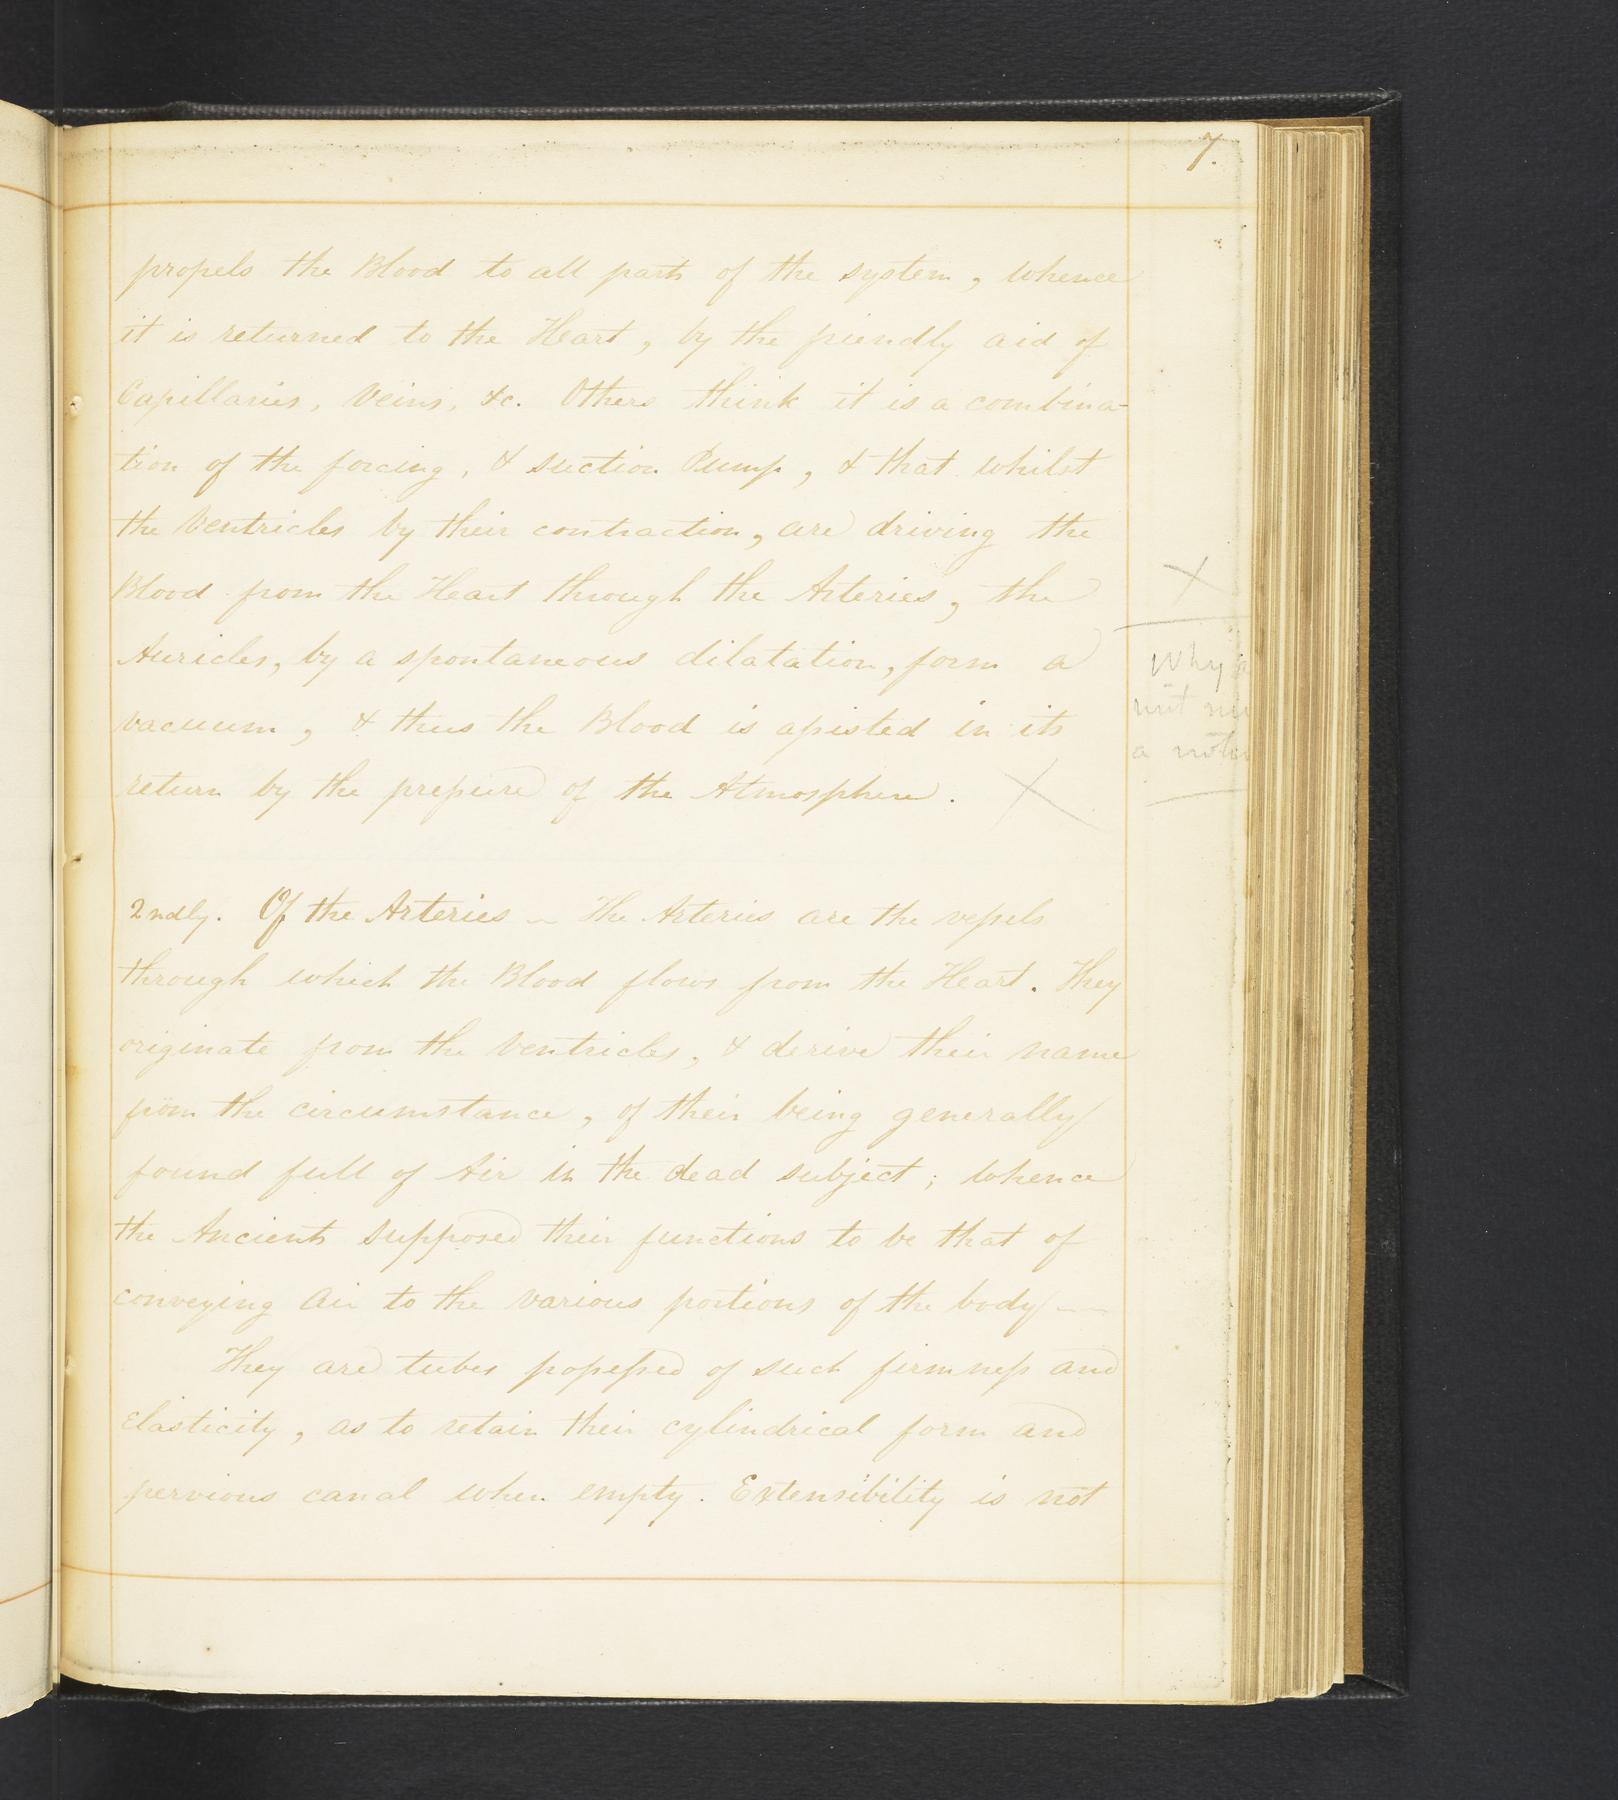 7.
propels the Blood to all parts of the system, whence
it is returned to the Heart, by the friendly aid of
Capillaries, Veins, &c. Others think it is a combina-
tion of the forcing, & suction Pump, & that whilst
the Ventricles by their contraction, are driving the
Blood from the Heart through the Arteries, the
Auricles, by a spontaneous dilatation, form a
vacuum, & thus the Blood is assisted in its
return by the pressure of the Atmosphere. X
X
Why
not
a
2ndly. Of the Arteries - The Arteries are the vessels
through which the Blood flows from the Heart. They
originate from the Ventricles, & derive their name
from the circumstance, of their being generally
found full of Air in the dead subject; whence
the Ancients supposed their functions to be that of
conveying Air to the various portions of the body -
They are tubes possessed of such firmness and
Elasticity, as to retain their cylindrical form and
pervious canal when empty. Extensibility is not